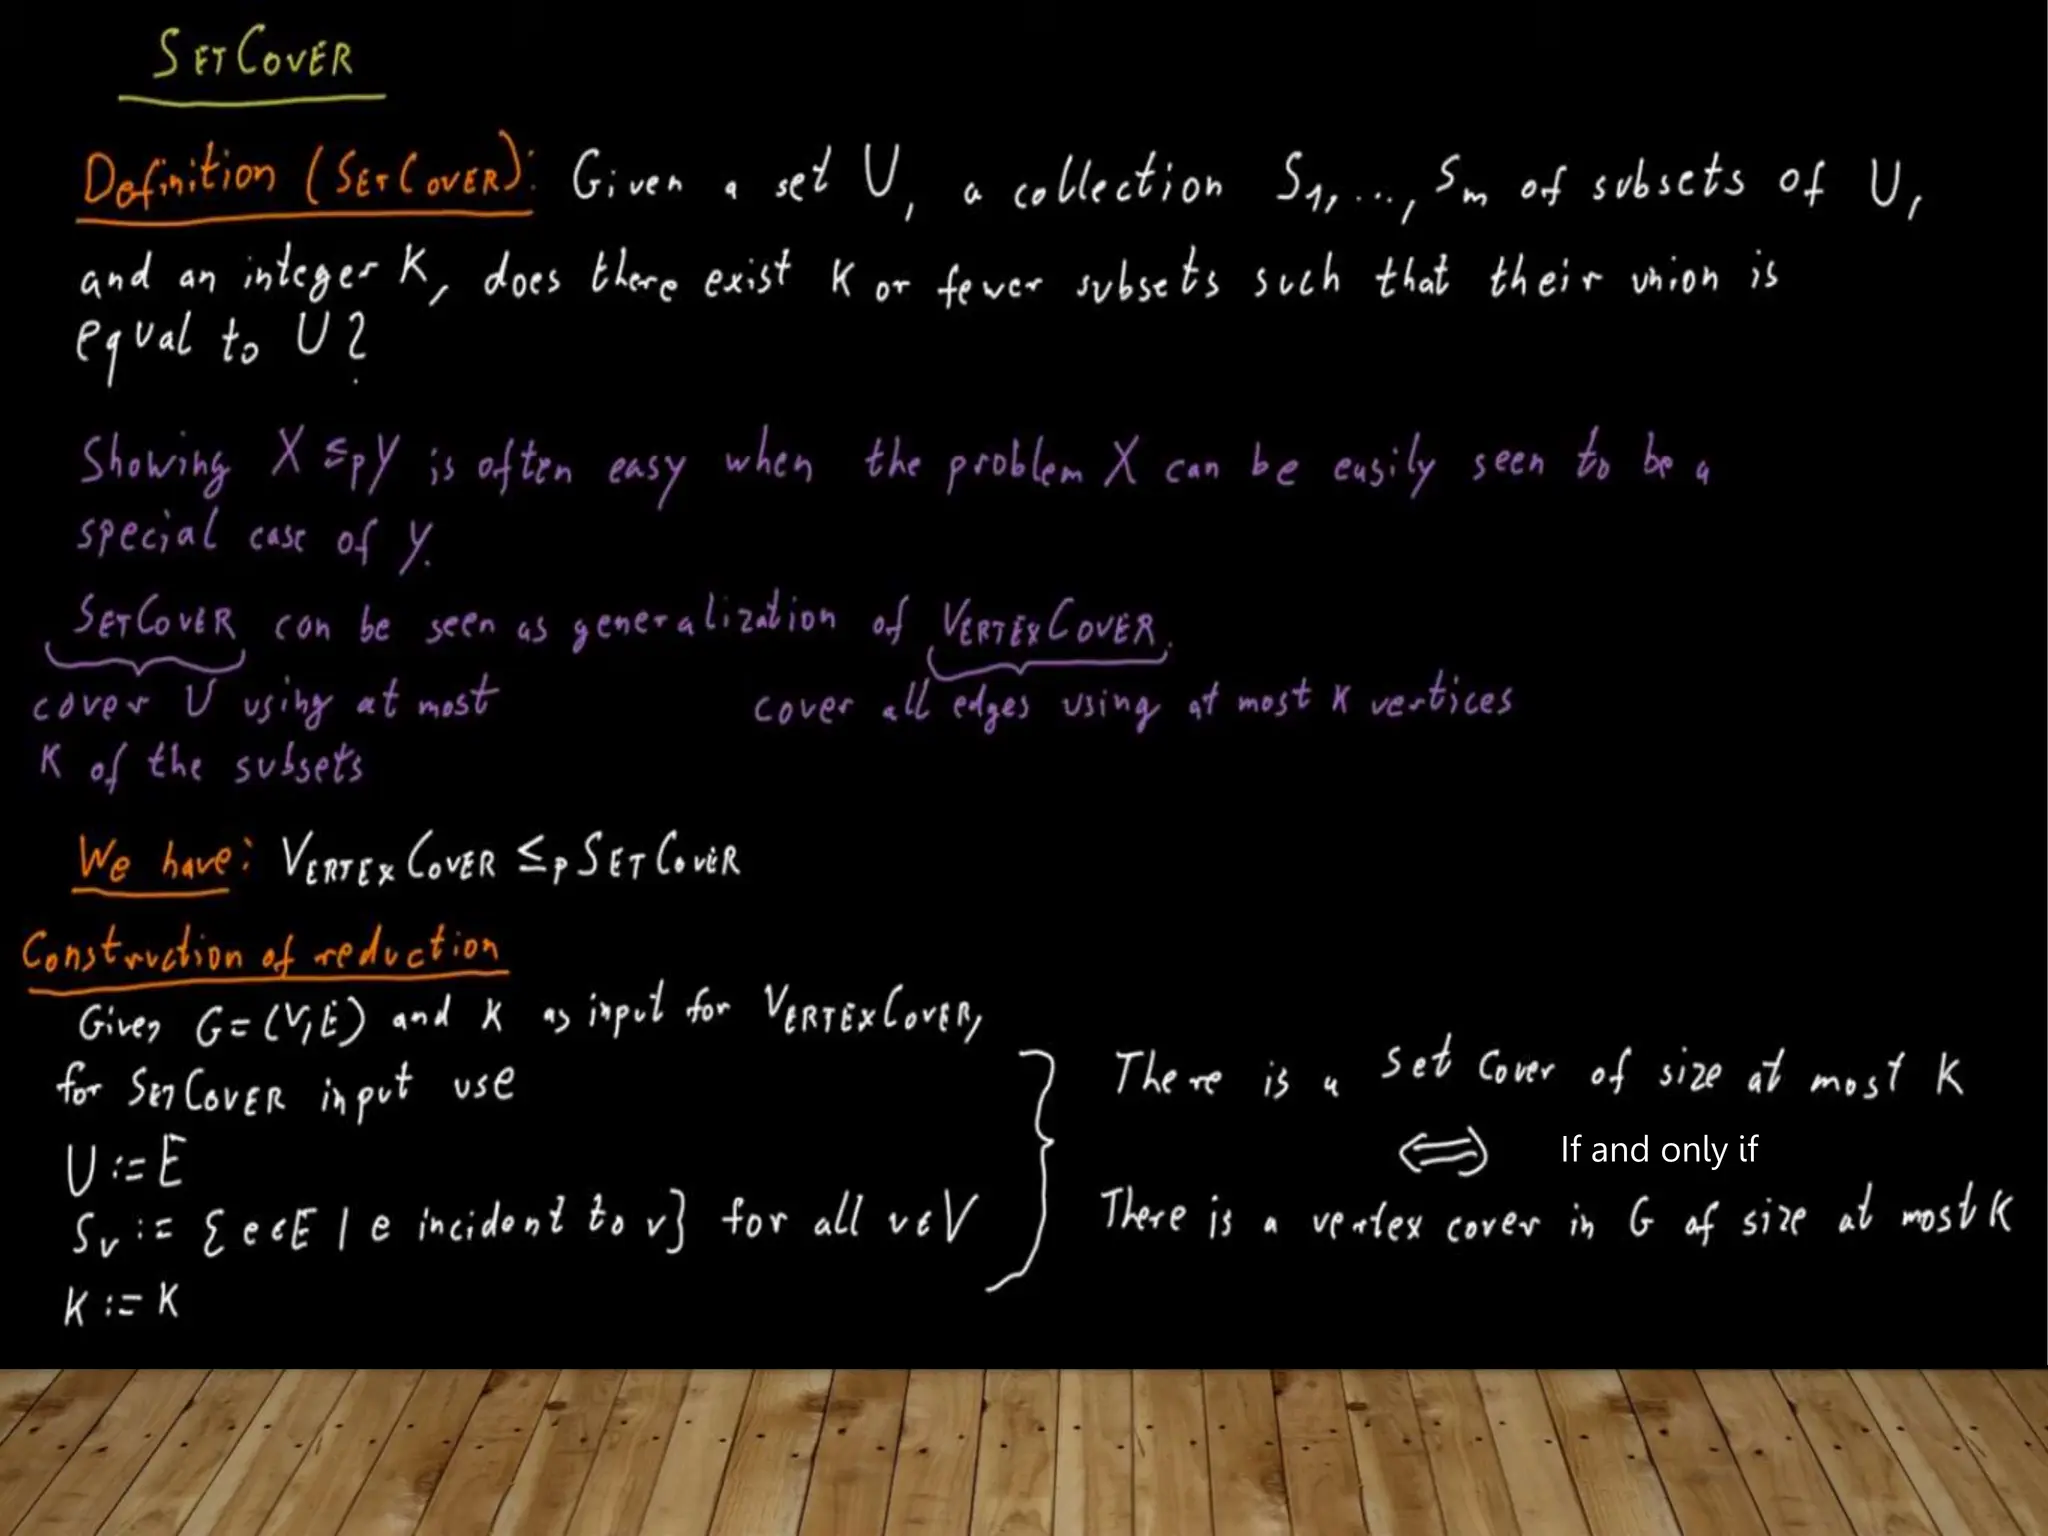 SETCOVER
Definition (SETCOVER): Given a set U, a collection S1,...,Sm of subsets of U,
and an integer K, does there exist K or fewer subsets such that their union is
equal to U?
Showing X ≤p Y is often easy when the problem X can be easily seen to be a
special case of Y.
SETCOVER can be seen as generalization of VERTEXCOVER.
cover U using at most
K of the subsets
cover all edges using at most K vertices
We have: VERTEXCOVER ≤p SETCOVER
Construction of reduction
Given G=(V,E) and K as input for VERTEXCOVER,
for SETCOVER input use
U := E
Sv := {e∈E | e incident to v} for all v∈V
K := K
There is a set cover of size at most K
⇔ If and only if
There is a vertex cover in G of size at most K